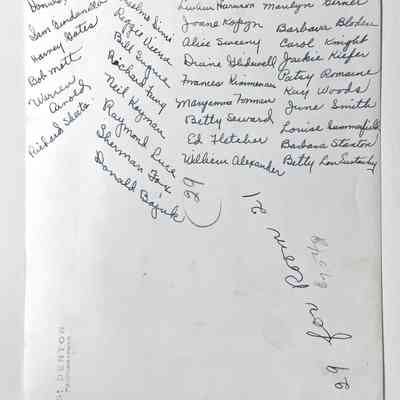 Sam
Harvey Gates
Bob Mott
Warren
Arnold
Richard Skate
Reggie Vieira
Bill Eugene
Richard Fung
Neil Kagman
Raymond Luce
Sherman Fox
Donald Bajuk
Lillian Harmon
Joane Kopyn
Alice Sweeny
Diane Glidewell
Frances Kinneman
Maryanna Forman
Betty Seward
Ed Fletcher
William Alexander
Marilyn
Barbara Bloden
Carol Knight
Jackie Kiefer
Patsy Romaine
Kay Woods
June Smith
Louise Summerfield
Barbara Stanton
Betty Lou
29
29 for Room 21
DENTON